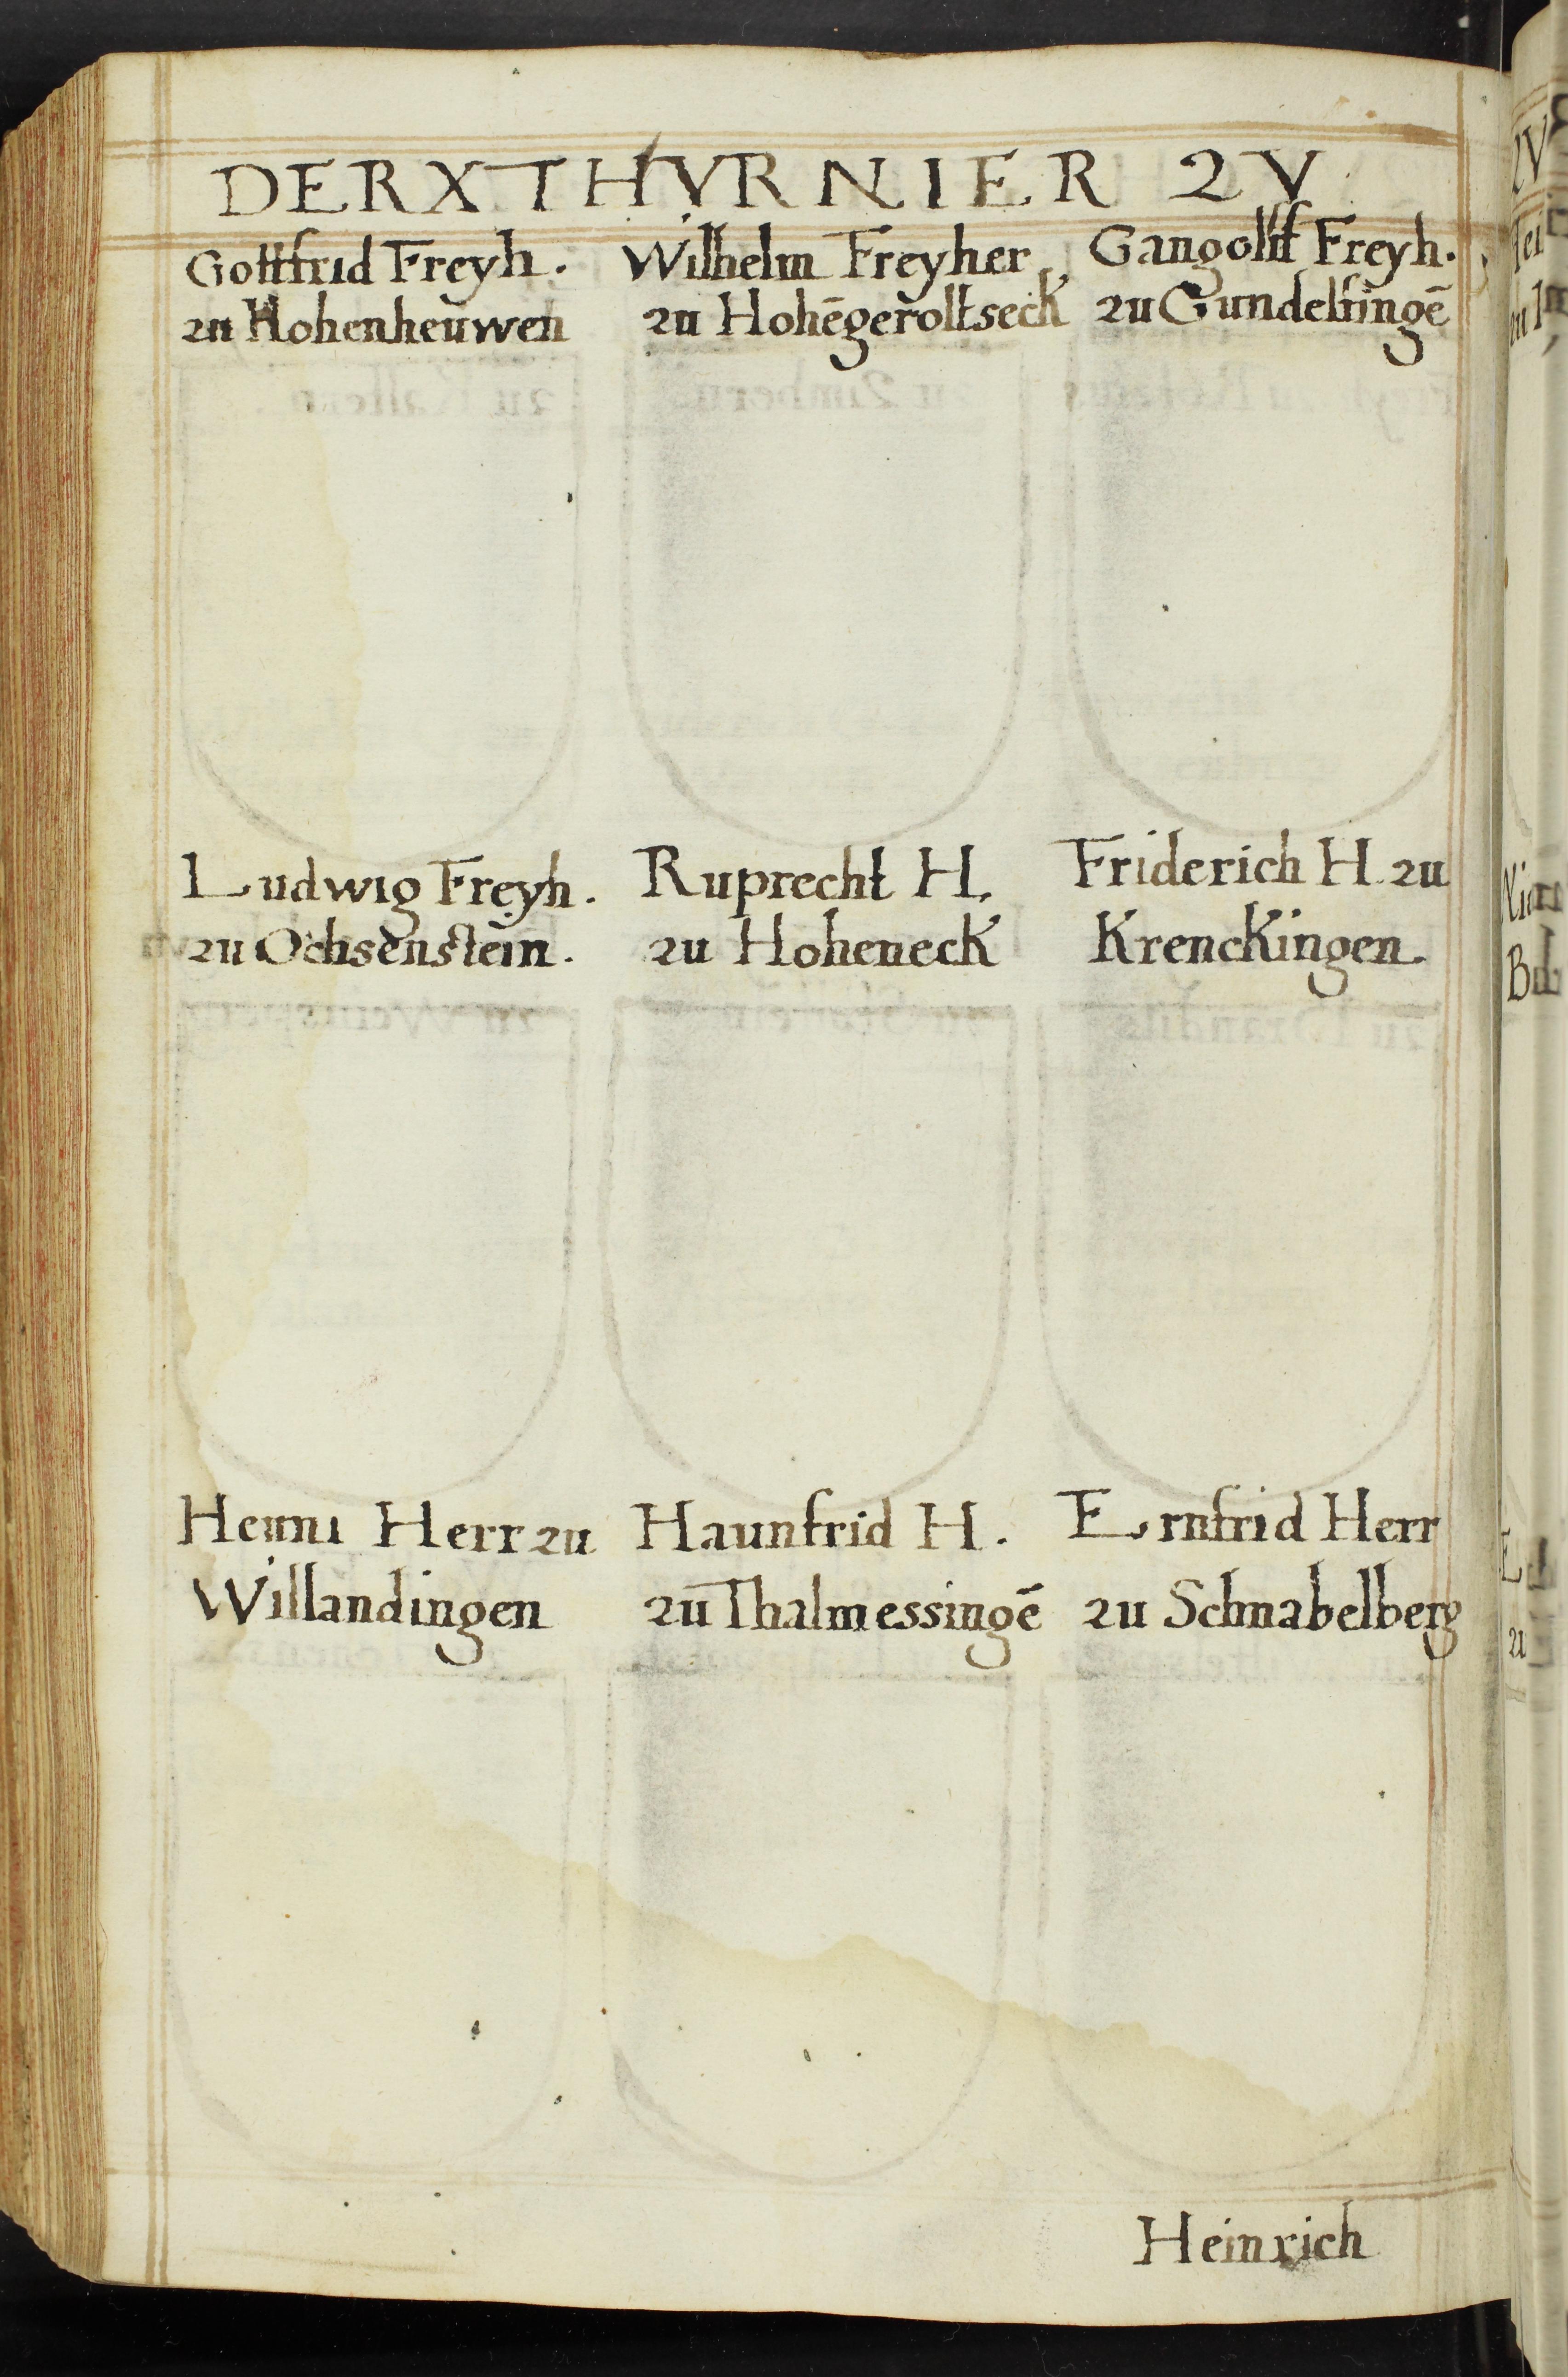 DER X THVRNIER ZV
Gottfrid Freyh.
zu Hohenheuwen
Wilhelm Freyher
zu Hohēgeroltseck
Gangolff Freyh.
zu Gundelfingē
Ludwig Freyh.
zu Ochsenstein.
Ruprecht H.
zu Hoheneck
Friderich H. zu
Krenckingen.
Henni Herr zu
Willandingen
Haunfrid H.
zu Thalmessingē
Ernfrid Herr
zu Schnabelberg
Heinrich